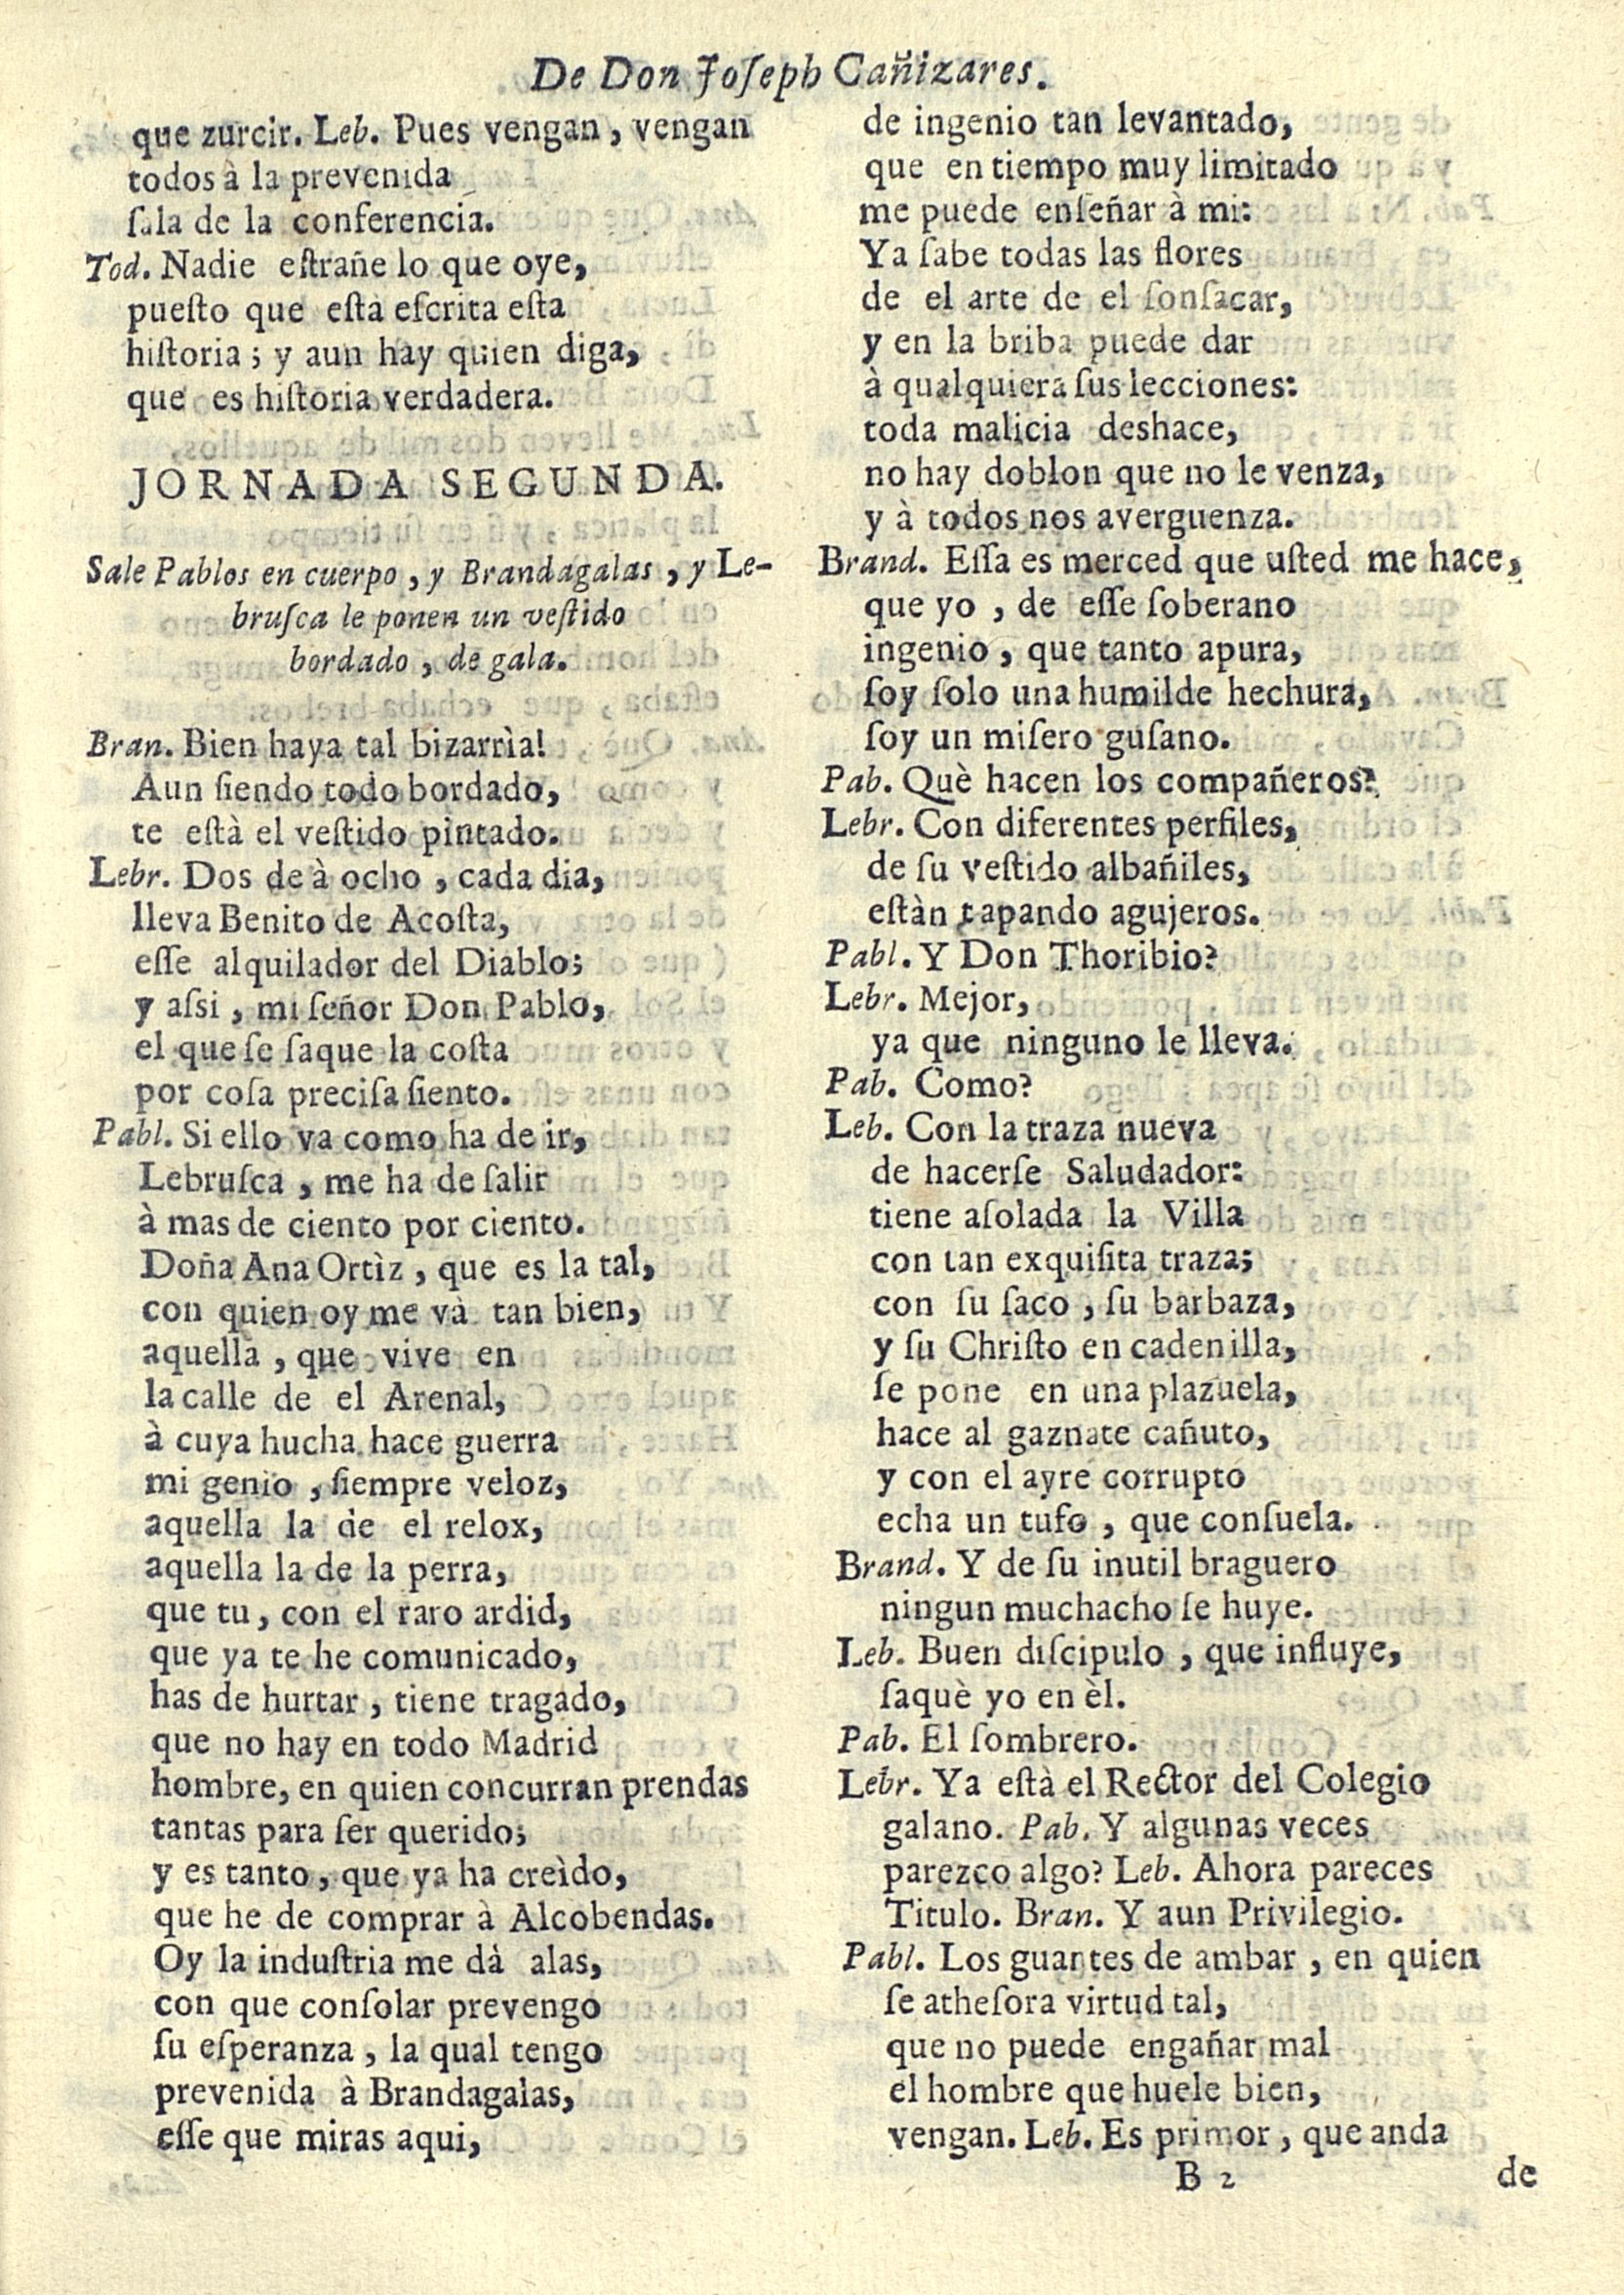 De Don Joſeph Cañizares.
que zurcir. Leb. Pues vengan, vengan
todos à la prevenida
ſala de la conferencia.
Tod. Nadie eſtrañe lo que oye,
pueſto que eſtà eſcrita eſta
hiſtoria; y aun hay quien diga,
que es hiſtoria verdadera.
JORNADA SEGUNDA.
Sale Pablos en cuerpo, y Brandagalas, y Le-
bruſca le ponen un veſtido
bordado, de gala.
Bran. Bien haya tal bizarrìa!
Aun ſiendo todo bordado,
te eſtà el veſtido pintado.
Lebr. Dos de à ocho, cada dia,
lleva Benito de Acoſta,
eſſe alquilador del Diablo;
y aſsi, mi ſeñor Don Pablo,
el que ſe ſaque la coſta
por coſa preciſa ſiento.
Pabl. Si ello va como ha de ir,
Lebruſca, me ha de ſalir
à mas de ciento por ciento.
Doña Ana Ortìz, que es la tal,
con quien oy me và tan bien,
aquella, que vive en
la calle de el Arenal,
à cuya hucha hace guerra
mi genio, ſiempre veloz,
aquella la de el relox,
aquella la de la perra,
que tu, con el raro ardid,
que ya te he comunicado,
has de hurtar, tiene tragado,
que no hay en todo Madrid
hombre, en quien concurran prendas
tantas para ſer querido;
y es tanto, que ya ha creìdo,
que he de comprar à Alcobendas.
Oy la induſtria me dà alas,
con que conſolar prevengo
ſu eſperanza, la qual tengo
prevenida à Brandagalas,
eſſe que miras aqui,
de ingenio tan levantado,
que en tiempo muy limitado
me puede enſeñar à mi:
Ya ſabe todas las flores
de el arte de el ſonſacar,
y en la briba puede dar
à qualquiera ſus lecciones:
toda malicia deshace,
no hay doblon que no le venza,
y à todos nos averguenza.
Brand. Eſſa es merced que uſted me hace,
que yo, de eſſe ſoberano
ingenio, que tanto apura,
ſoy ſolo una humilde hechura,
ſoy un miſero guſano.
Pab. Què hacen los compañeros?
Lebr. Con diferentes perfiles,
de ſu veſtido albañiles,
eſtàn tapando agujeros.
Pabl. Y Don Thoribio?
Lebr. Mejor,
ya que ninguno le lleva.
Pab. Como?
Leb. Con la traza nueva
de hacerſe Saludador:
tiene aſolada la Villa
con tan exquiſita traza;
con ſu ſaco, ſu barbaza,
y ſu Chriſto en cadenilla,
ſe pone en una plazuela,
hace al gaznate cañuto,
y con el ayre corrupto
echa un tufo, que conſuela.
Brand. Y de ſu inutil braguero
ningun muchacho ſe huye.
Leb. Buen diſcipulo, que influye,
ſaquè yo en èl.
Pab. El ſombrero.
Lebr. Ya eſtà el Rector del Colegio
galano. Pab. Y algunas veces
parezco algo? Leb. Ahora pareces
Titulo. Bran. Y aun Privilegio.
Pabl. Los guantes de ambar, en quien
ſe atheſora virtud tal,
que no puede engañar mal
el hombre que huele bien,
vengan. Leb. Es primor, que anda
B 2 de